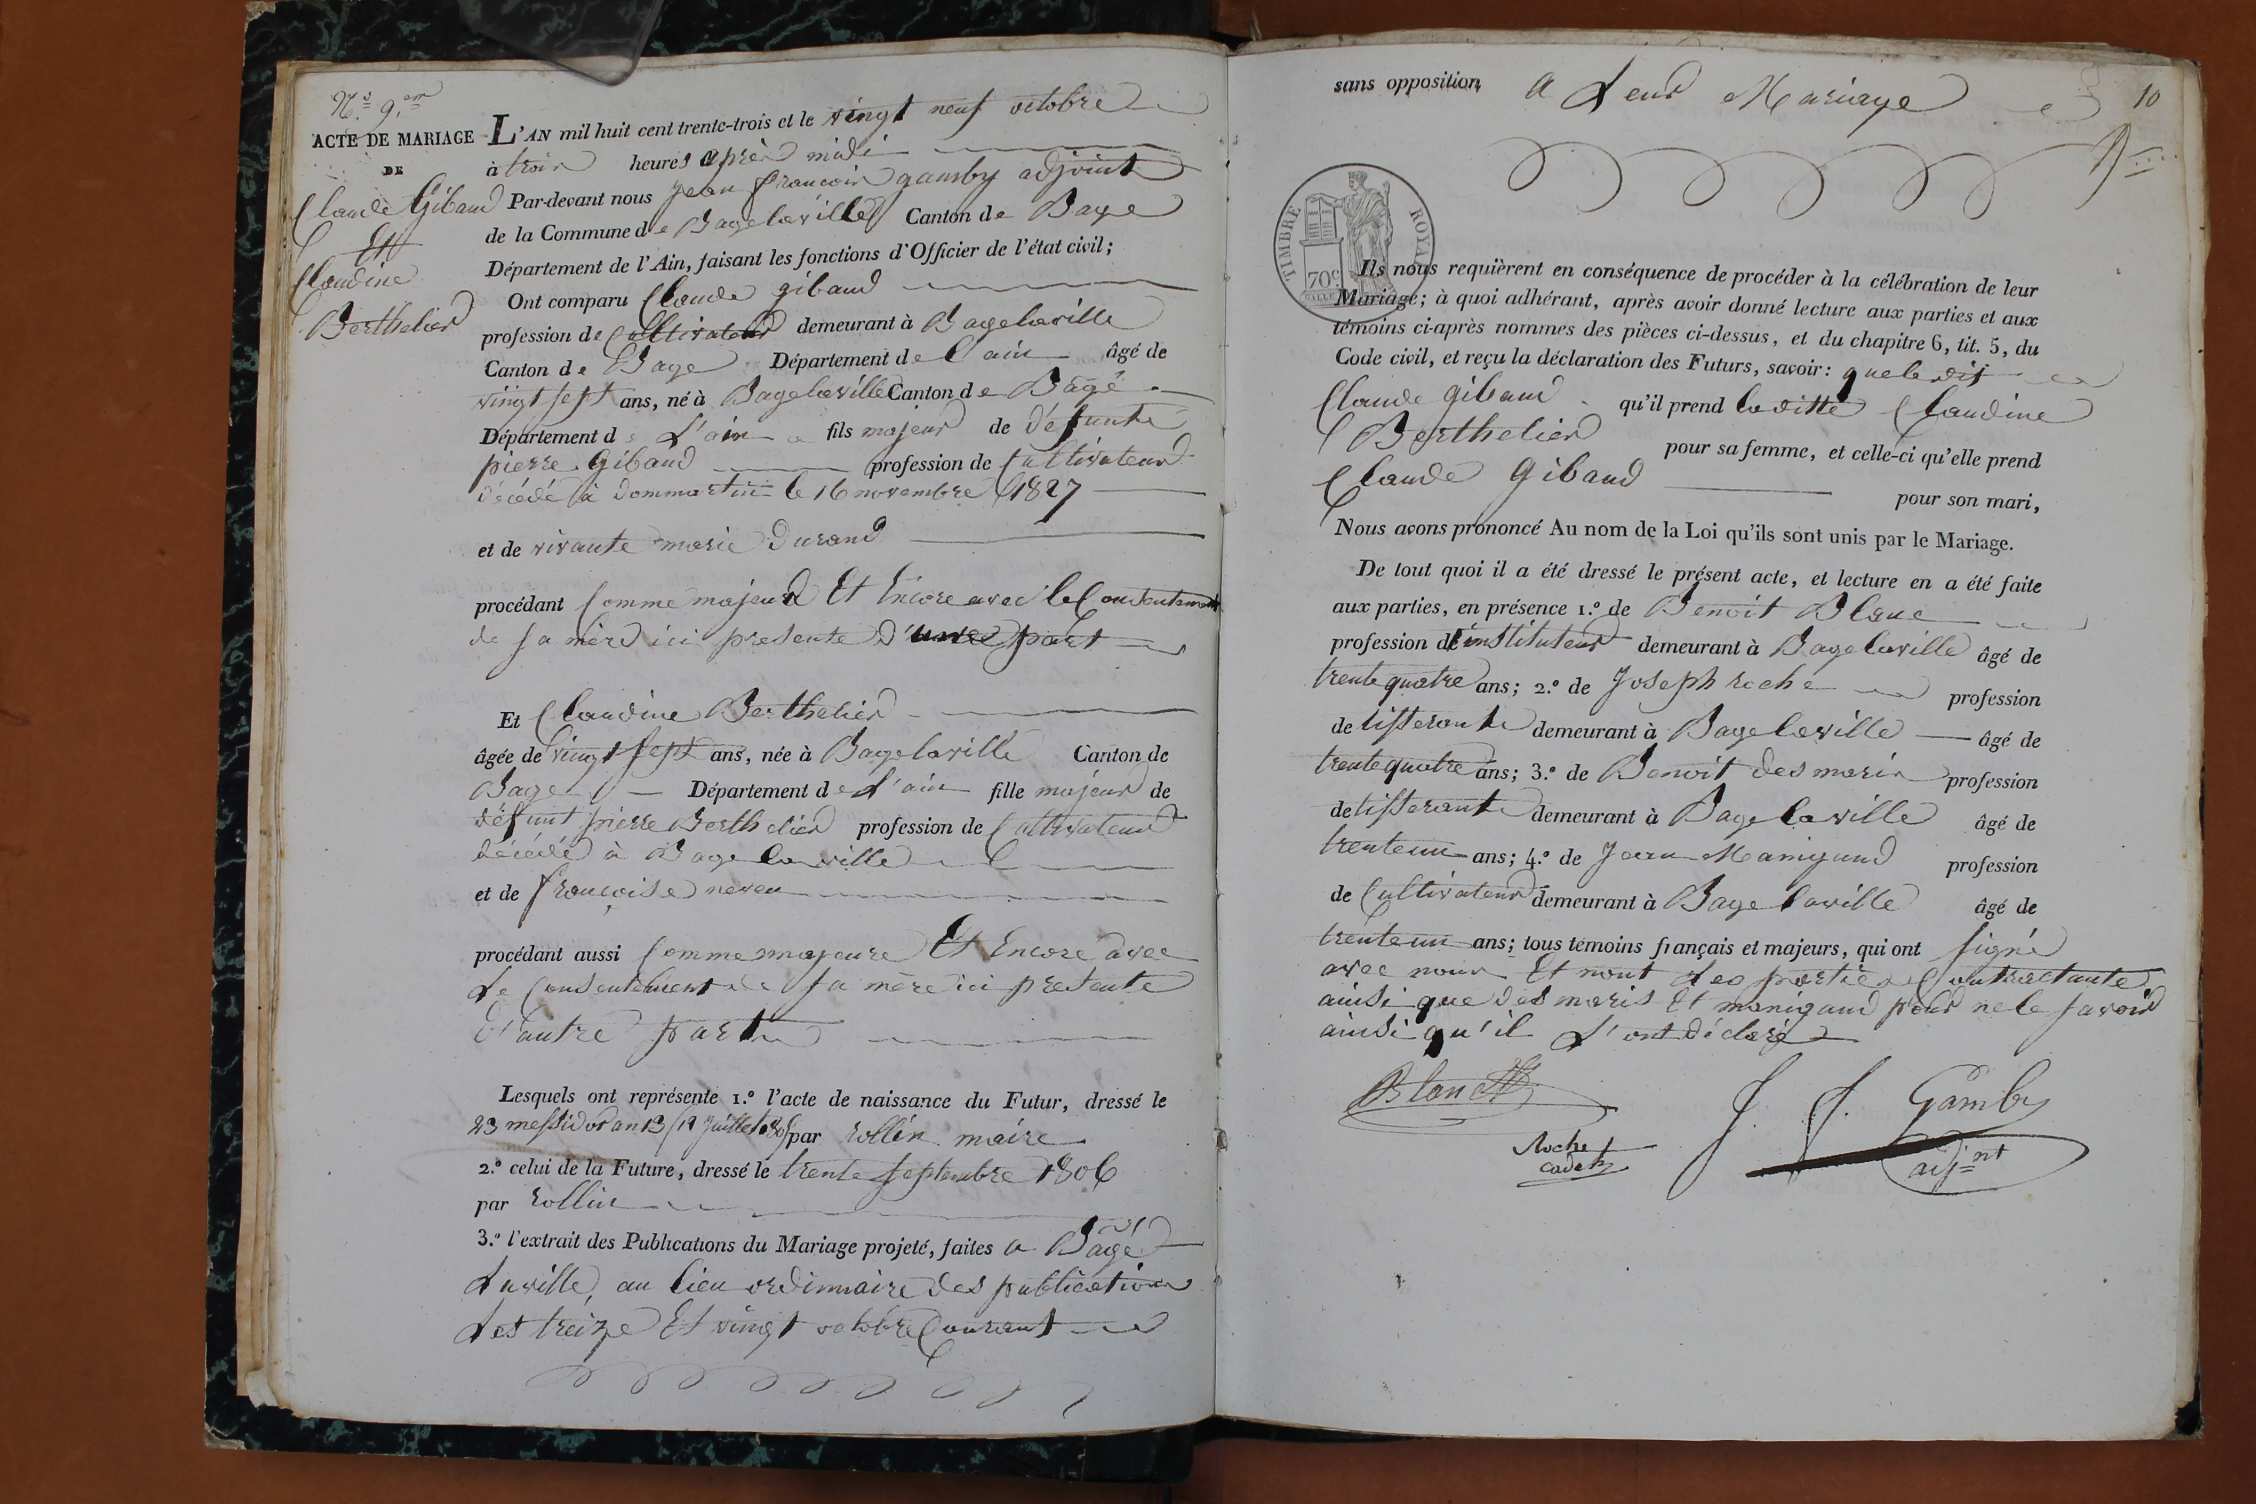 N.° 9.em
ACTE DE MARIAGE
DE
Claude Gibaud
Et
Claudine
Berthelier
L'AN mil huit cent trente-trois et le vingt neuf octobre
à trois heures après midi
Par-devant nous Jean françois gamby adjoint
de la Commune de Bagelaville Canton de Bage
Département de l'Ain, faisant les fonctions d'Officier de l'état civil;
Ont comparu Claude gibaud
profession de Cultivateur demeurant à Bagelaville
Canton de Bage Département de l'ain âgé de
vingt sept ans, né à Bagelaville Canton de Bagé
Département de L'ain fils majeur de défunt
pierre Gibaud profession de Cultivateur
décédé à dommartin le 16 novembre 1827
et de vivante marie Durand
procédant Comme majeur Et Encore avec le Consentement
de sa mère ici presente d'une part
Et Claudine Berthelier
âgée de vingt sept ans, née à Bagelaville Canton de
Bage Département de L'ain fille majeur de
défunt pierre Berthelier profession de Cultivateur
décédé à Bage la ville
et de françoise neveu
procédant aussi Comme majeure Et Encore avec
Le Consentement de sa mère ici presente
d'autre part
Lesquels ont représenté 1.° l'acte de naissance du Futur, dressé le
23 messidor an 13 (12 Juillet 1805) par rollin maire
2.° celui de la Future, dressé le trente septembre 1806
par rollin
3.° l'extrait des Publications du Mariage projeté, faites a Bagé
Laville, au lieu ordinnaire des publications
des treize Et vingt octobre Courant
sans opposition a Leur Mariage
10
TIMBRE ROYAL
70c
Ils nous requièrent en conséquence de procéder à la célébration de leur
Mariage; à quoi adhérant, après avoir donné lecture aux parties et aux
témoins ci-après nommés des pièces ci-dessus, et du chapitre 6, tit. 5, du
Code civil, et reçu la déclaration des Futurs, savoir: que le dit
Claude Gibaud qu'il prend la ditte Claudine
Berthelier pour sa femme, et celle-ci qu'elle prend
Claude Gibaud pour son mari,
Nous avons prononcé Au nom de la Loi qu'ils sont unis par le Mariage.
De tout quoi il a été dressé le présent acte, et lecture en a été faite
aux parties, en présence 1.° de Benoit Blanc
profession de instituteur demeurant à Bagelaville âgé de
trente quatre ans; 2.° de Joseph roche profession
de tisserant demeurant à Bagelaville âgé de
trente quatre ans; 3.° de Benoit desmaris profession
de tisserant demeurant à Bagelaville âgé de
trente un ans; 4.° de Jean Manigand profession
de Cultivateur demeurant à Bage laville âgé de
trente un ans; tous témoins français et majeurs, qui ont signé
avec nous Et nont Les parties Contractante
ainsi que desmaris Et manigand pour ne le savoir
ainsi qu'il L'ont déclaré
Blanc
J. f. Gamby
adjnt
Roche
cadet